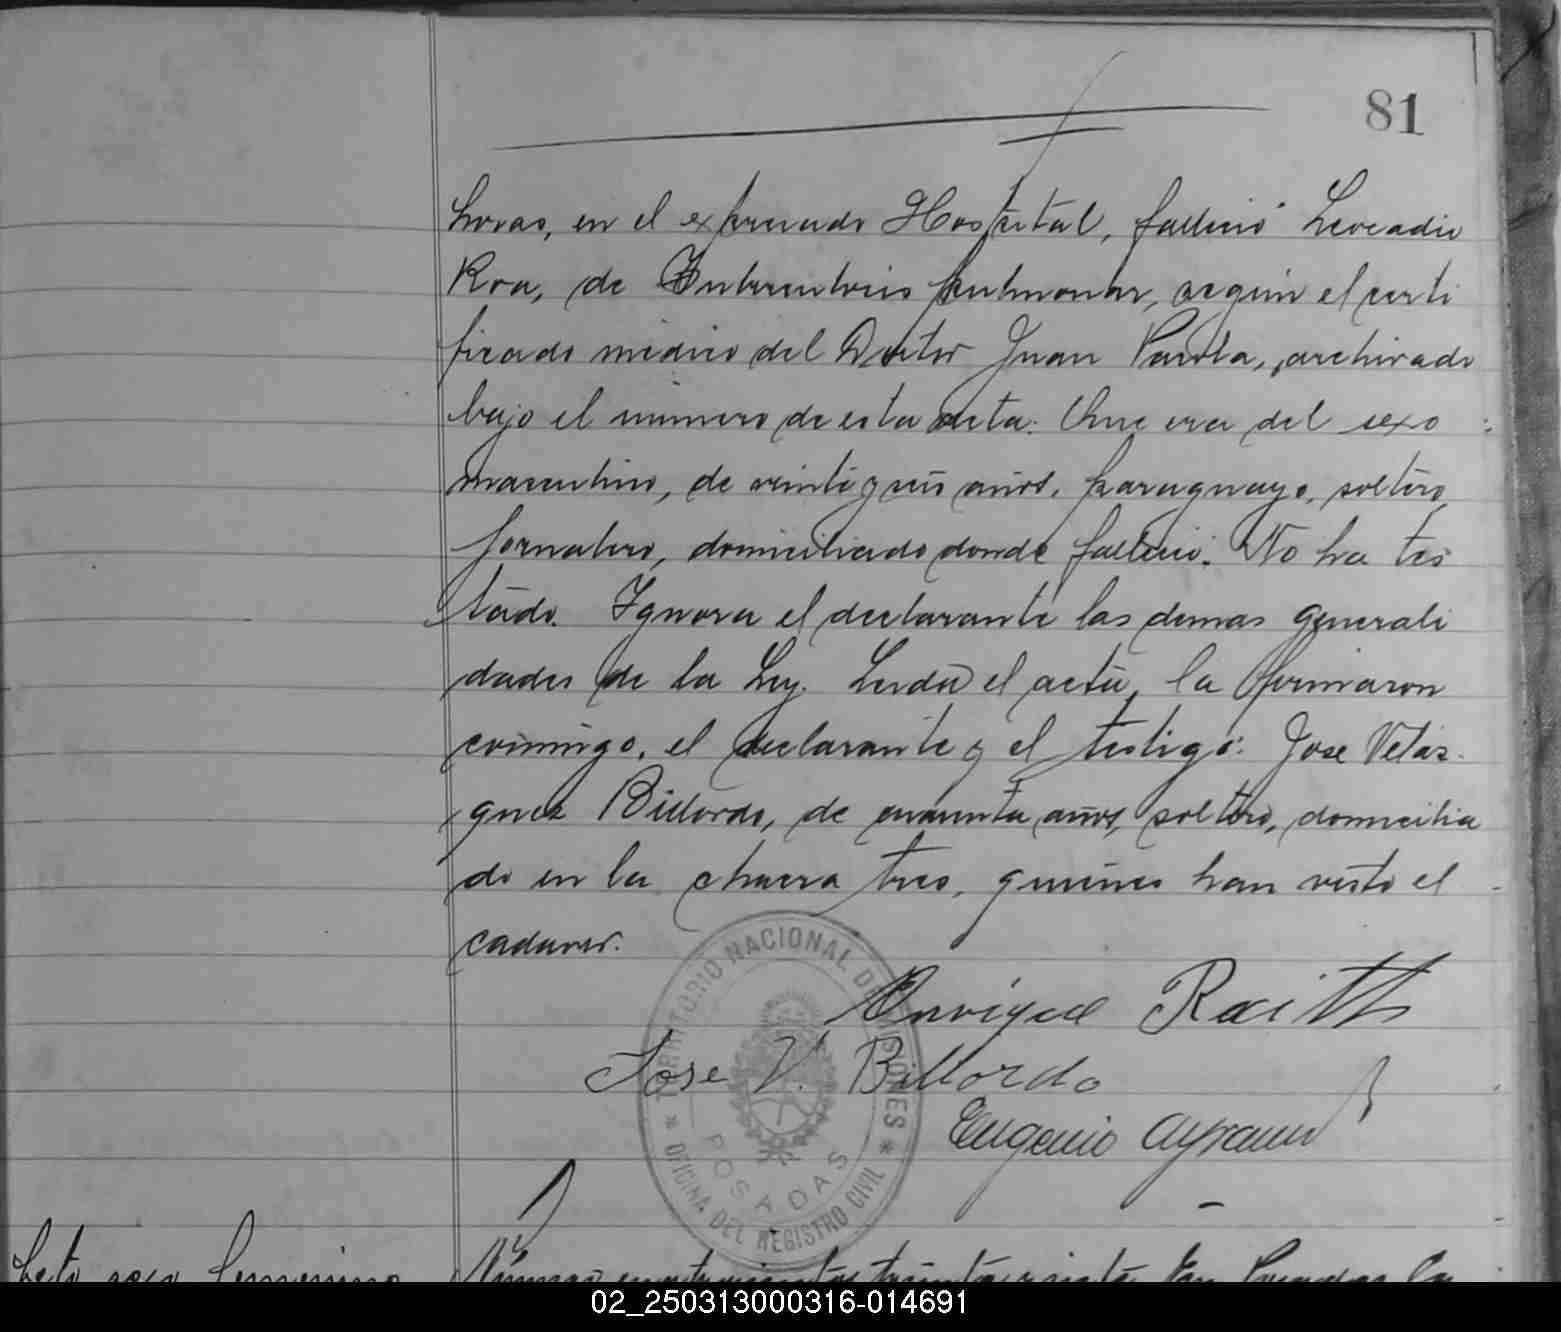 81
horas, en el expresado Hospital, falleció Leocadio
Roa, de Tuberculosis pulmonar, según el certi
ficado médico del Doctor Juan Parola, archivado
bajo el número de esta acta: Que era del sexo
masculino, de veintiseis años, paraguayo, soltero,
jornalero, domiciliado donde falleció. No ha tes
tado. Ignora el declarante las demas generali
dades de la Ley. Leida el acta, la firmaron
conmigo, el declarante y el testigo: Jose Velás-
quez Billordo, de cuarenta años, soltero, domicilia
do en la chacra tres, quienes han visto el
cadaver.
Enrique Raith
Jose V. Billordo
Eugenio
TERRITORIO NACIONAL DE MISIONES
POSADAS
* OFICINA DEL REGISTRO CIVIL *
Feto sexo femenino
Número cuatrocientos treinta y siete En Posadas la
02_250313000316-014691